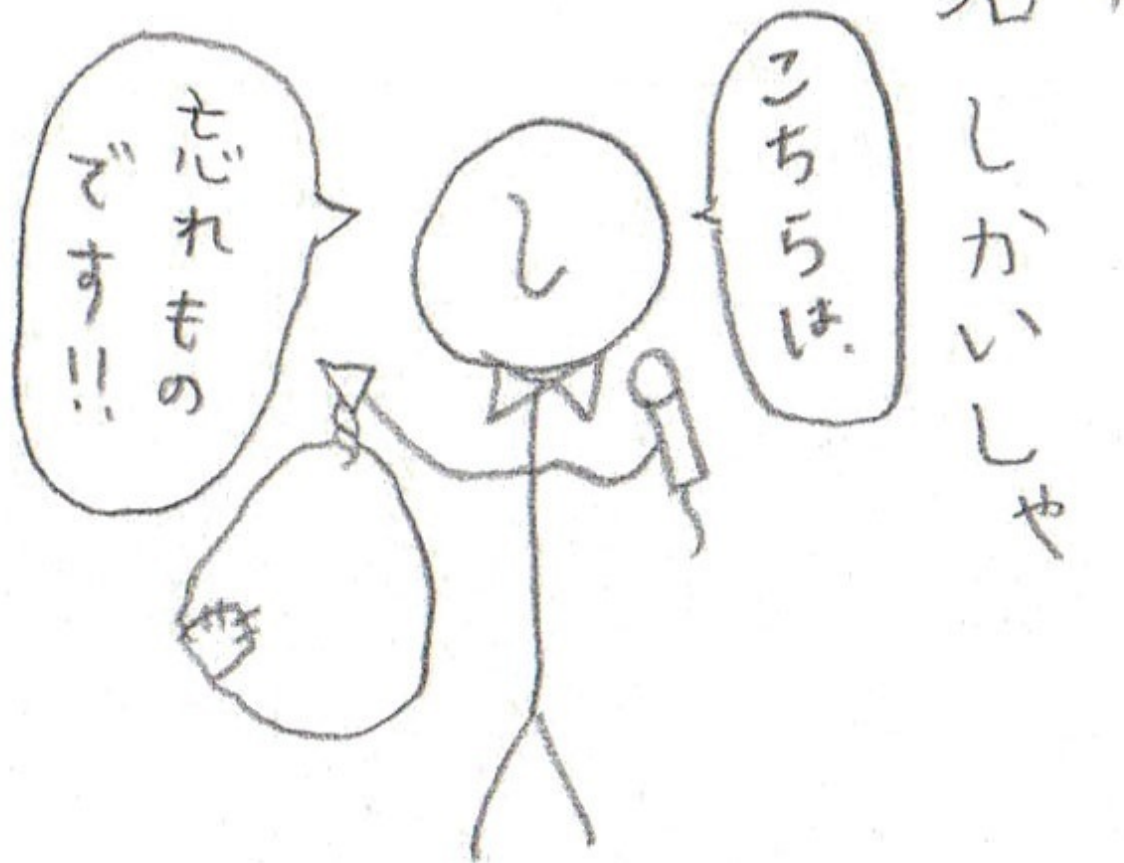 しかいしゃ
こちらは、
し
忘れもの
です!!